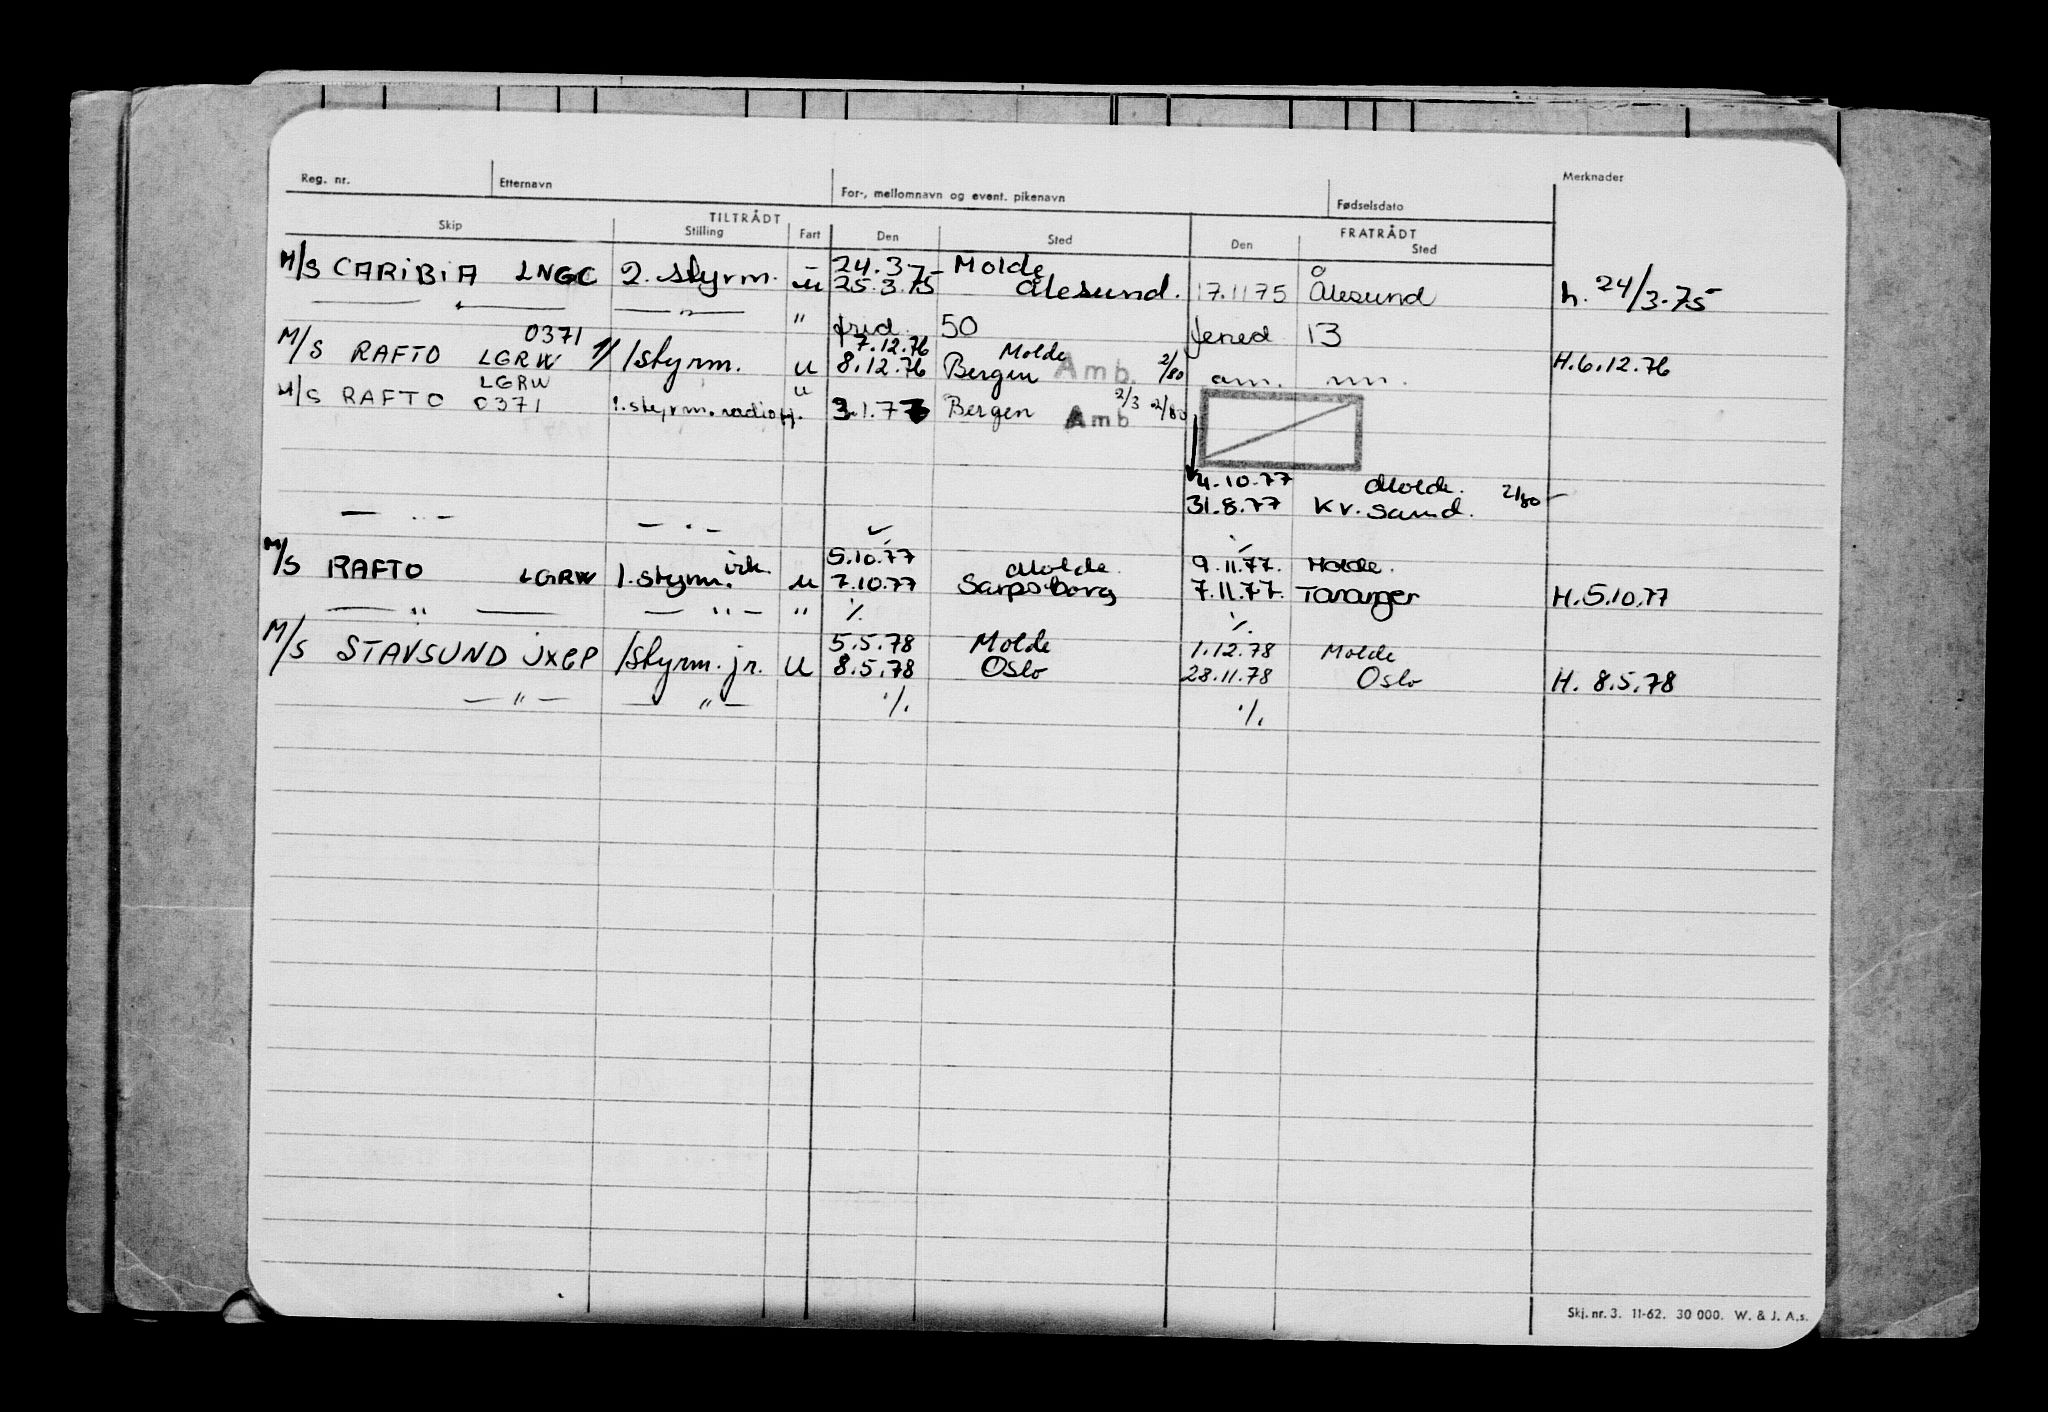 Reg. nr. Etternavn For-, mellomnavn og event. pikenavn Fødselsdato Merknader
TILTRÅDT FRATRÅDT
Skip Stilling Fart Den Sted Den Sted
24.3.75 Molde
M/S CARIBIA LNGC 2. styrm. u 25.3.75 Ålesund. 17.11 75 Ålesund h. 24/3-75
— " — — " — " frid. 50 fered 13
0371 7.12.76 Molde
M/S RAFTO LGRW 1/ 1styrm. u 8.12.76 Bergen Amb. 2/80 H.6.12.76
LGRW "
M/S RAFTO 0371 1. styrm. radio 3.1.77 Bergen Amb 2/3 2/80
4.10.77 Molde. 2/80
31.8.77 Kr. Sand.
— " — — " —
5.10.77 Molde 9.11.77. Molde.
M/S RAFTO LGRW 1. styrm. u 7.10.77 Sarpsborg 7.11.77. Tananger H.5.10.77
— " — — " — " ٪ ٪
5.5.78 Molde 1.12.78 Molde
M/S STAVSUND JXGP 1styrm. jr. u 8.5.78 Oslo 28.11.78 Oslo H. 8.5.78
— " — — " — ٪ ٪
Skj. nr. 3. 11-62. 30 000. W. & J. A.s.